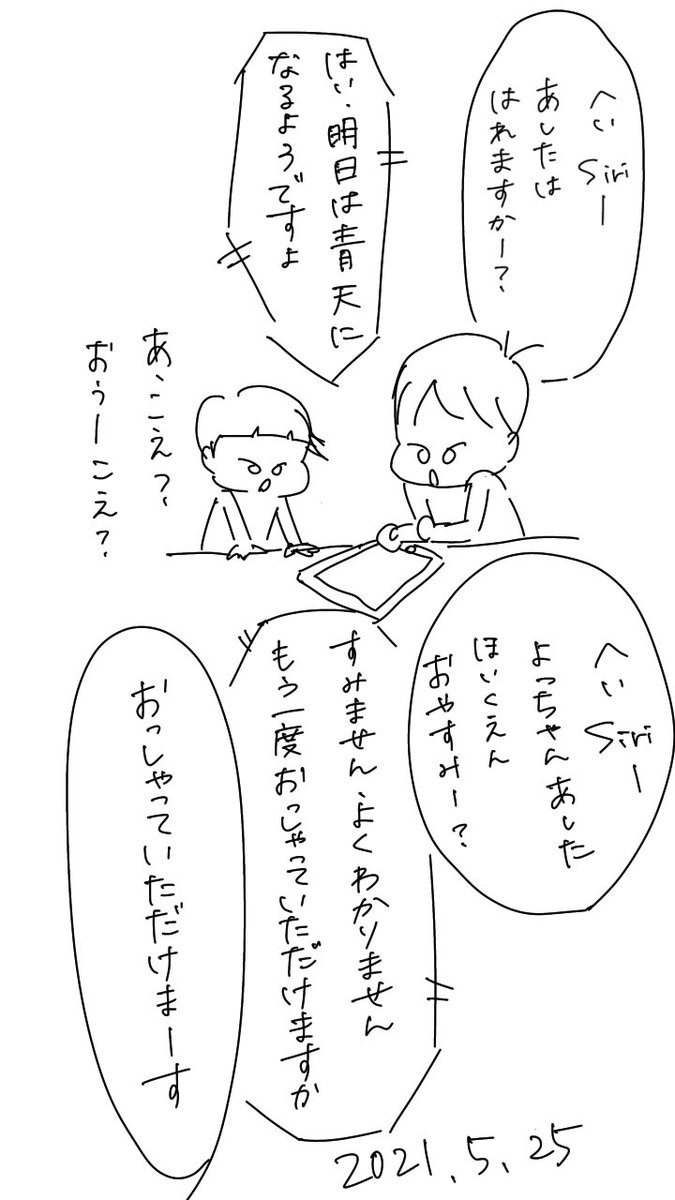 へい Siriー
あしたは
はれますかー?
はい、明日は青天に
なるようですよ
あ、こえ?
おぅーこえ?
へい Siriー
よっちゃんあした
ほいくえん
おやすみー?
すみません、よくわかりません
もう一度おっしゃっていただけますか
おっしゃっていただけまーす
2021.5.25